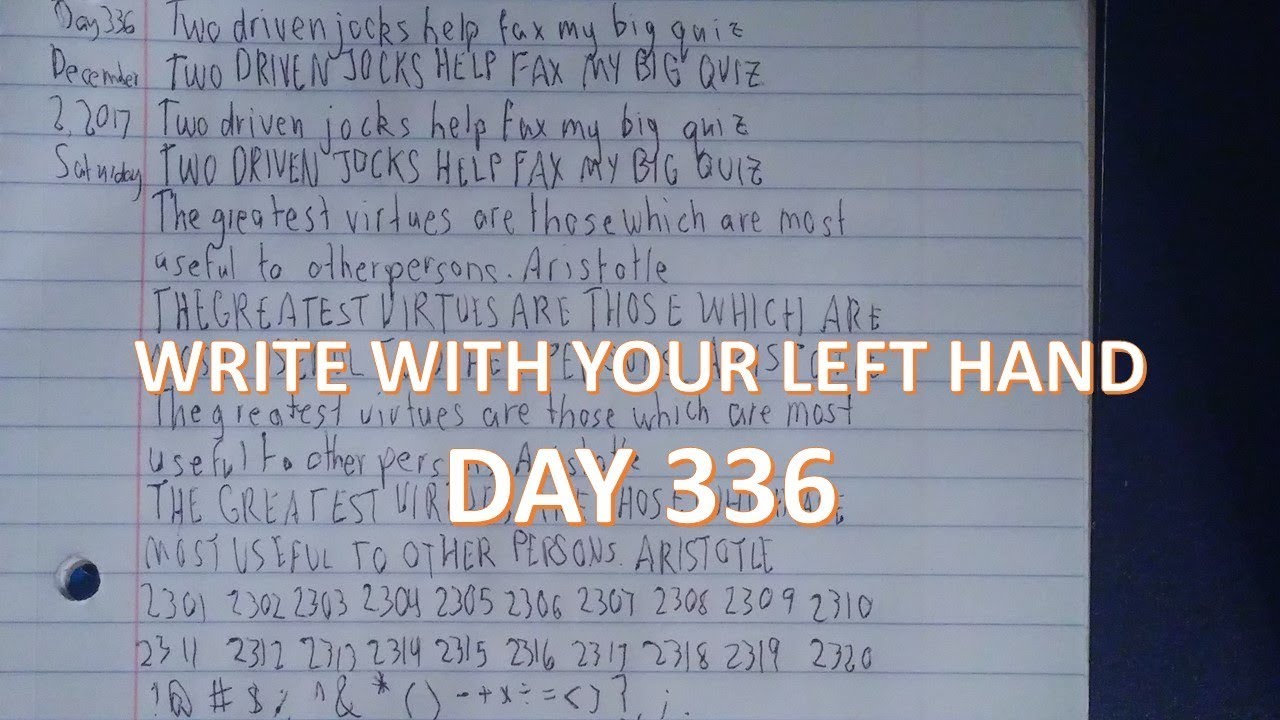 Day 336 Two driven jocks help fax my big quiz
December TWO DRIVEN JOCKS HELP FAX MY BIG QUIZ
2, 2017 Two driven jocks help fax my big quiz
Saturday TWO DRIVEN JOCKS HELP FAX MY BIG QUIZ
The greatest virtues are those which are most
useful to other persons. Aristotle
THE GREATEST VIRTUES ARE THOSE WHICH ARE
WRITE WITH YOUR LEFT HAND
The greatest virtues are those which are most
useful to other persons. Aristotle
DAY 336
THE GREATEST VIRTUES ARE THOSE WHICH ARE
MOST USEFUL TO OTHER PERSONS. ARISTOTLE
2301 2302 2303 2304 2305 2306 2307 2308 2309 2310
2311 2312 2313 2314 2315 2316 2317 2318 2319 2320
! @ # $ % ^ & * ( ) - + x ÷ = < >